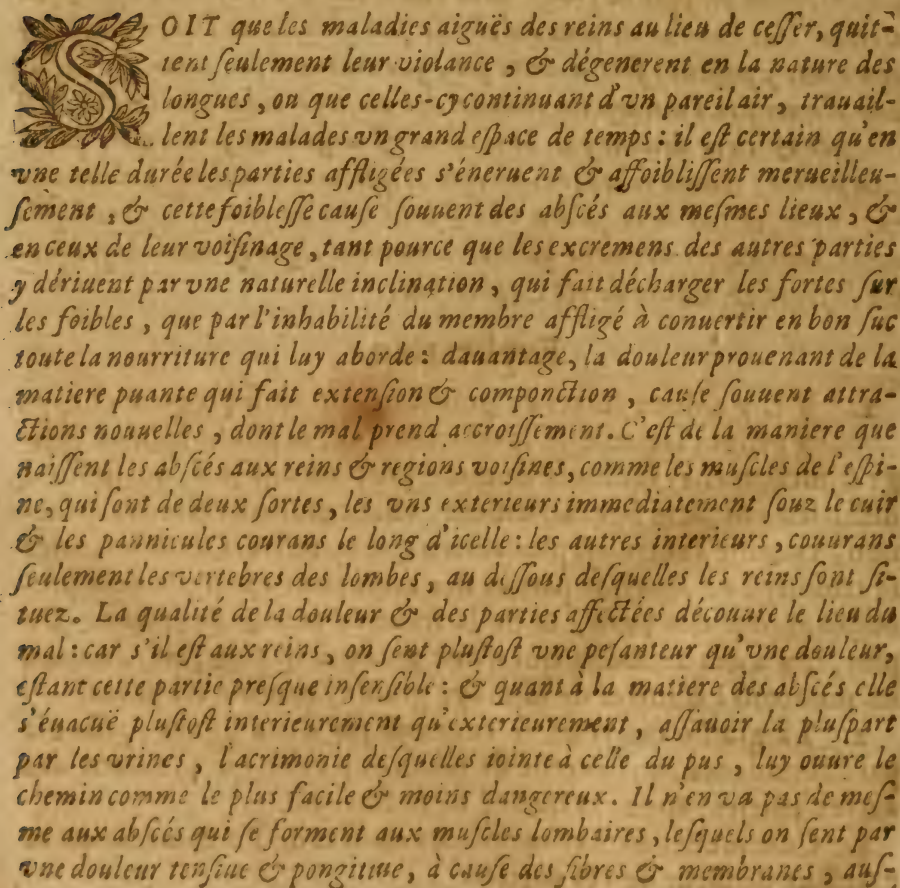 SOIT que les maladies aiguës des reins au lieu de ceſſer, quit-
tent ſeulement leur violance, & dégenerent en la nature des
longues, ou que celles-cy continuant d'vn pareil air, trauail-
lent les malades vn grand eſpace de temps: il eſt certain qu'en
vne telle durée les parties affligées s'éneruent & affoibliſſent merueilleu-
ſement, & cette foibleſſe cauſe ſouuent des abſcés aux meſmes lieux, &
en ceux de leur voiſinage, tant pource que les excremens des autres parties
y dériuent par vne naturelle inclination, qui fait décharger les fortes ſur
les foibles, que par l'inhabilité du membre affligé à conuertir en bon ſuc
toute la nourriture qui luy aborde: dauantage, la douleur prouenant de la
matiere puante qui fait extenſion & componction, cauſe ſouuent attra-
ctions nouuelles, dont le mal prend accroiſſement. C'eſt de la maniere que
naiſſent les abſcés aux reins & regions voiſines, comme les muſcles de l'eſpi-
ne, qui ſont de deux ſortes, les vns exterieurs immediatement ſouz le cuir
& les pannicules courans le long d'icelle: les autres interieurs, couurans
ſeulement les vertebres des lombes, au deſſous deſquelles les reins ſont ſi-
tuez. La qualité de la douleur & des parties affectées découure le lieu du
mal: car s'il eſt aux reins, on ſent pluſtoſt vne peſanteur qu'vne douleur,
eſtant cette partie preſque inſenſible: & quant à la matiere des abſcés elle
s'éuacuë pluſtoſt interieurement qu'exterieurement, aſſauoir la pluſpart
par les vrines, l'acrimonie deſquelles iointe à celle du pus, luy ouure le
chemin comme le plus facile & moins dangereux. Il n'en va pas de meſ-
me aux abſcés qui ſe forment aux muſcles lombaires, leſquels on ſent par
vne douleur tenſiue & pongitiue, à cauſe des fibres & membranes, auſ-